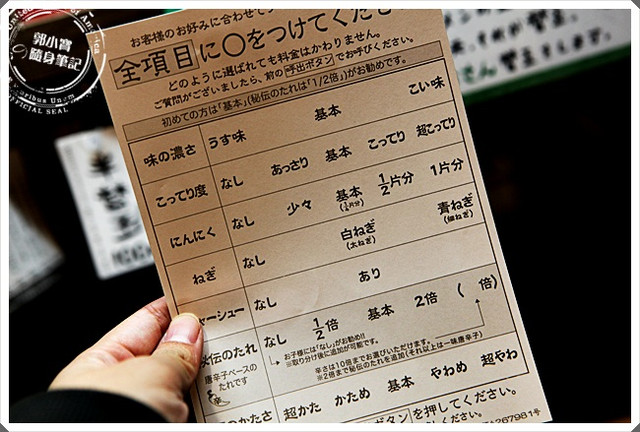 郭小寶
の隨身筆記
OFFICIAL SEAL
お客様のお好みに合わせて
全項目に○をつけてくださ
どのように選ばれても料金はかわりません。
ご質問がございましたら、前の呼出ボタンでお呼びください。
初めての方は「基本」(秘伝のたれは「1/2倍」)がお勧めです。
味の濃さ うす味 基本 こい味
こってり度 なし あっさり 基本 こってり 超こってり
にんにく なし 少々 基本 1/2片分 1片分
ねぎ なし 白ねぎ(太ねぎ) 青ねぎ(細ねぎ)
ャーシュー なし あり
秘伝のたれ なし 1/2倍 基本 2倍 ( 倍)
唐辛子ベースのたれです
お子様には「なし」がお勧め!!
※取り分け後に追加が可能です。
辛さは10倍までお選びいただけます。
※2倍まで秘伝のたれを追加(それ以上は一味唐辛子)
のかたさ 超かた かため 基本 やわめ 超やわ
ボタンを押してください。
ください。
267981号